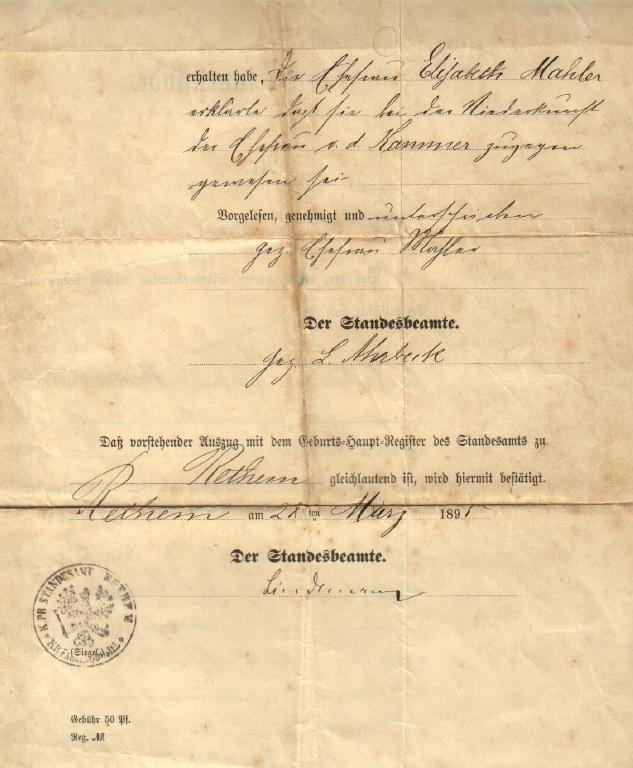 erhalten habe. Die Ehefrau Elisabeth Mahler
erklärte daß sie bei der Niederkunft
der Ehefrau v. d. Kammer zugegen
gewesen sei
Vorgelesen, genehmigt und unterschrieben
gez. Ehefrau Mahler
Der Standesbeamte.
gez. L. Ahrbeck
Daß vorstehender Auszug mit dem Geburts-Haupt-Register des Standesamts zu
Rethem gleichlautend ist, wird hiermit bestätigt.
Rethem am 28 ten März 1895
Der Standesbeamte.
Lindemann
K. PR. STANDESAMT RETHEM
(Siegel.)
Gebühr 50 Pf.
Reg. №